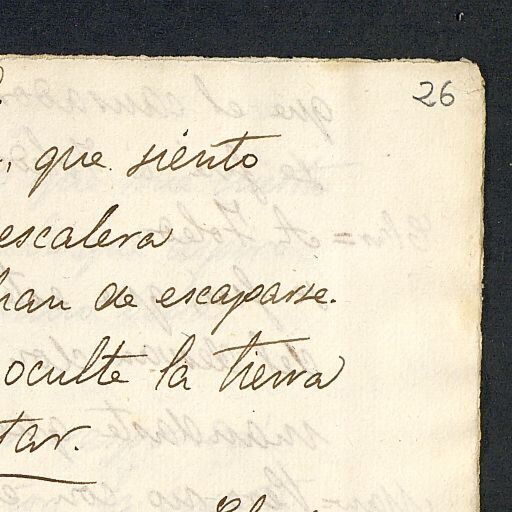 26
que siento
escalera
han de escaparse.
oculte la tierra
tar.